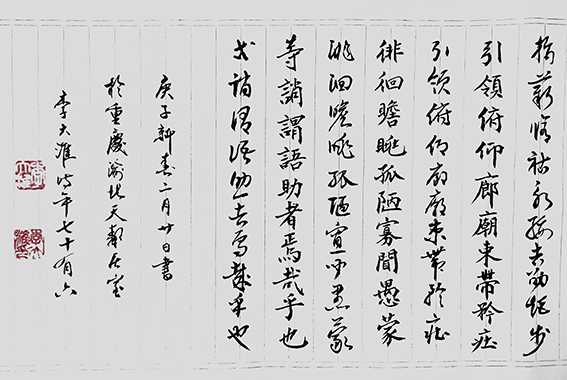 指薪修祜永綏吉劭矩步
引領俯仰廊廟束帶矜庄
引領俯仰廊廟束帶矜庄
徘徊瞻眺孤陋寡聞愚蒙
徘徊瞻眺孤陋寡聞愚蒙
等誚謂語助者焉哉乎也
等誚謂語助者焉哉乎也
庚子新春二月廿日書
於重慶渝北天居室
李大淮時年七十有六